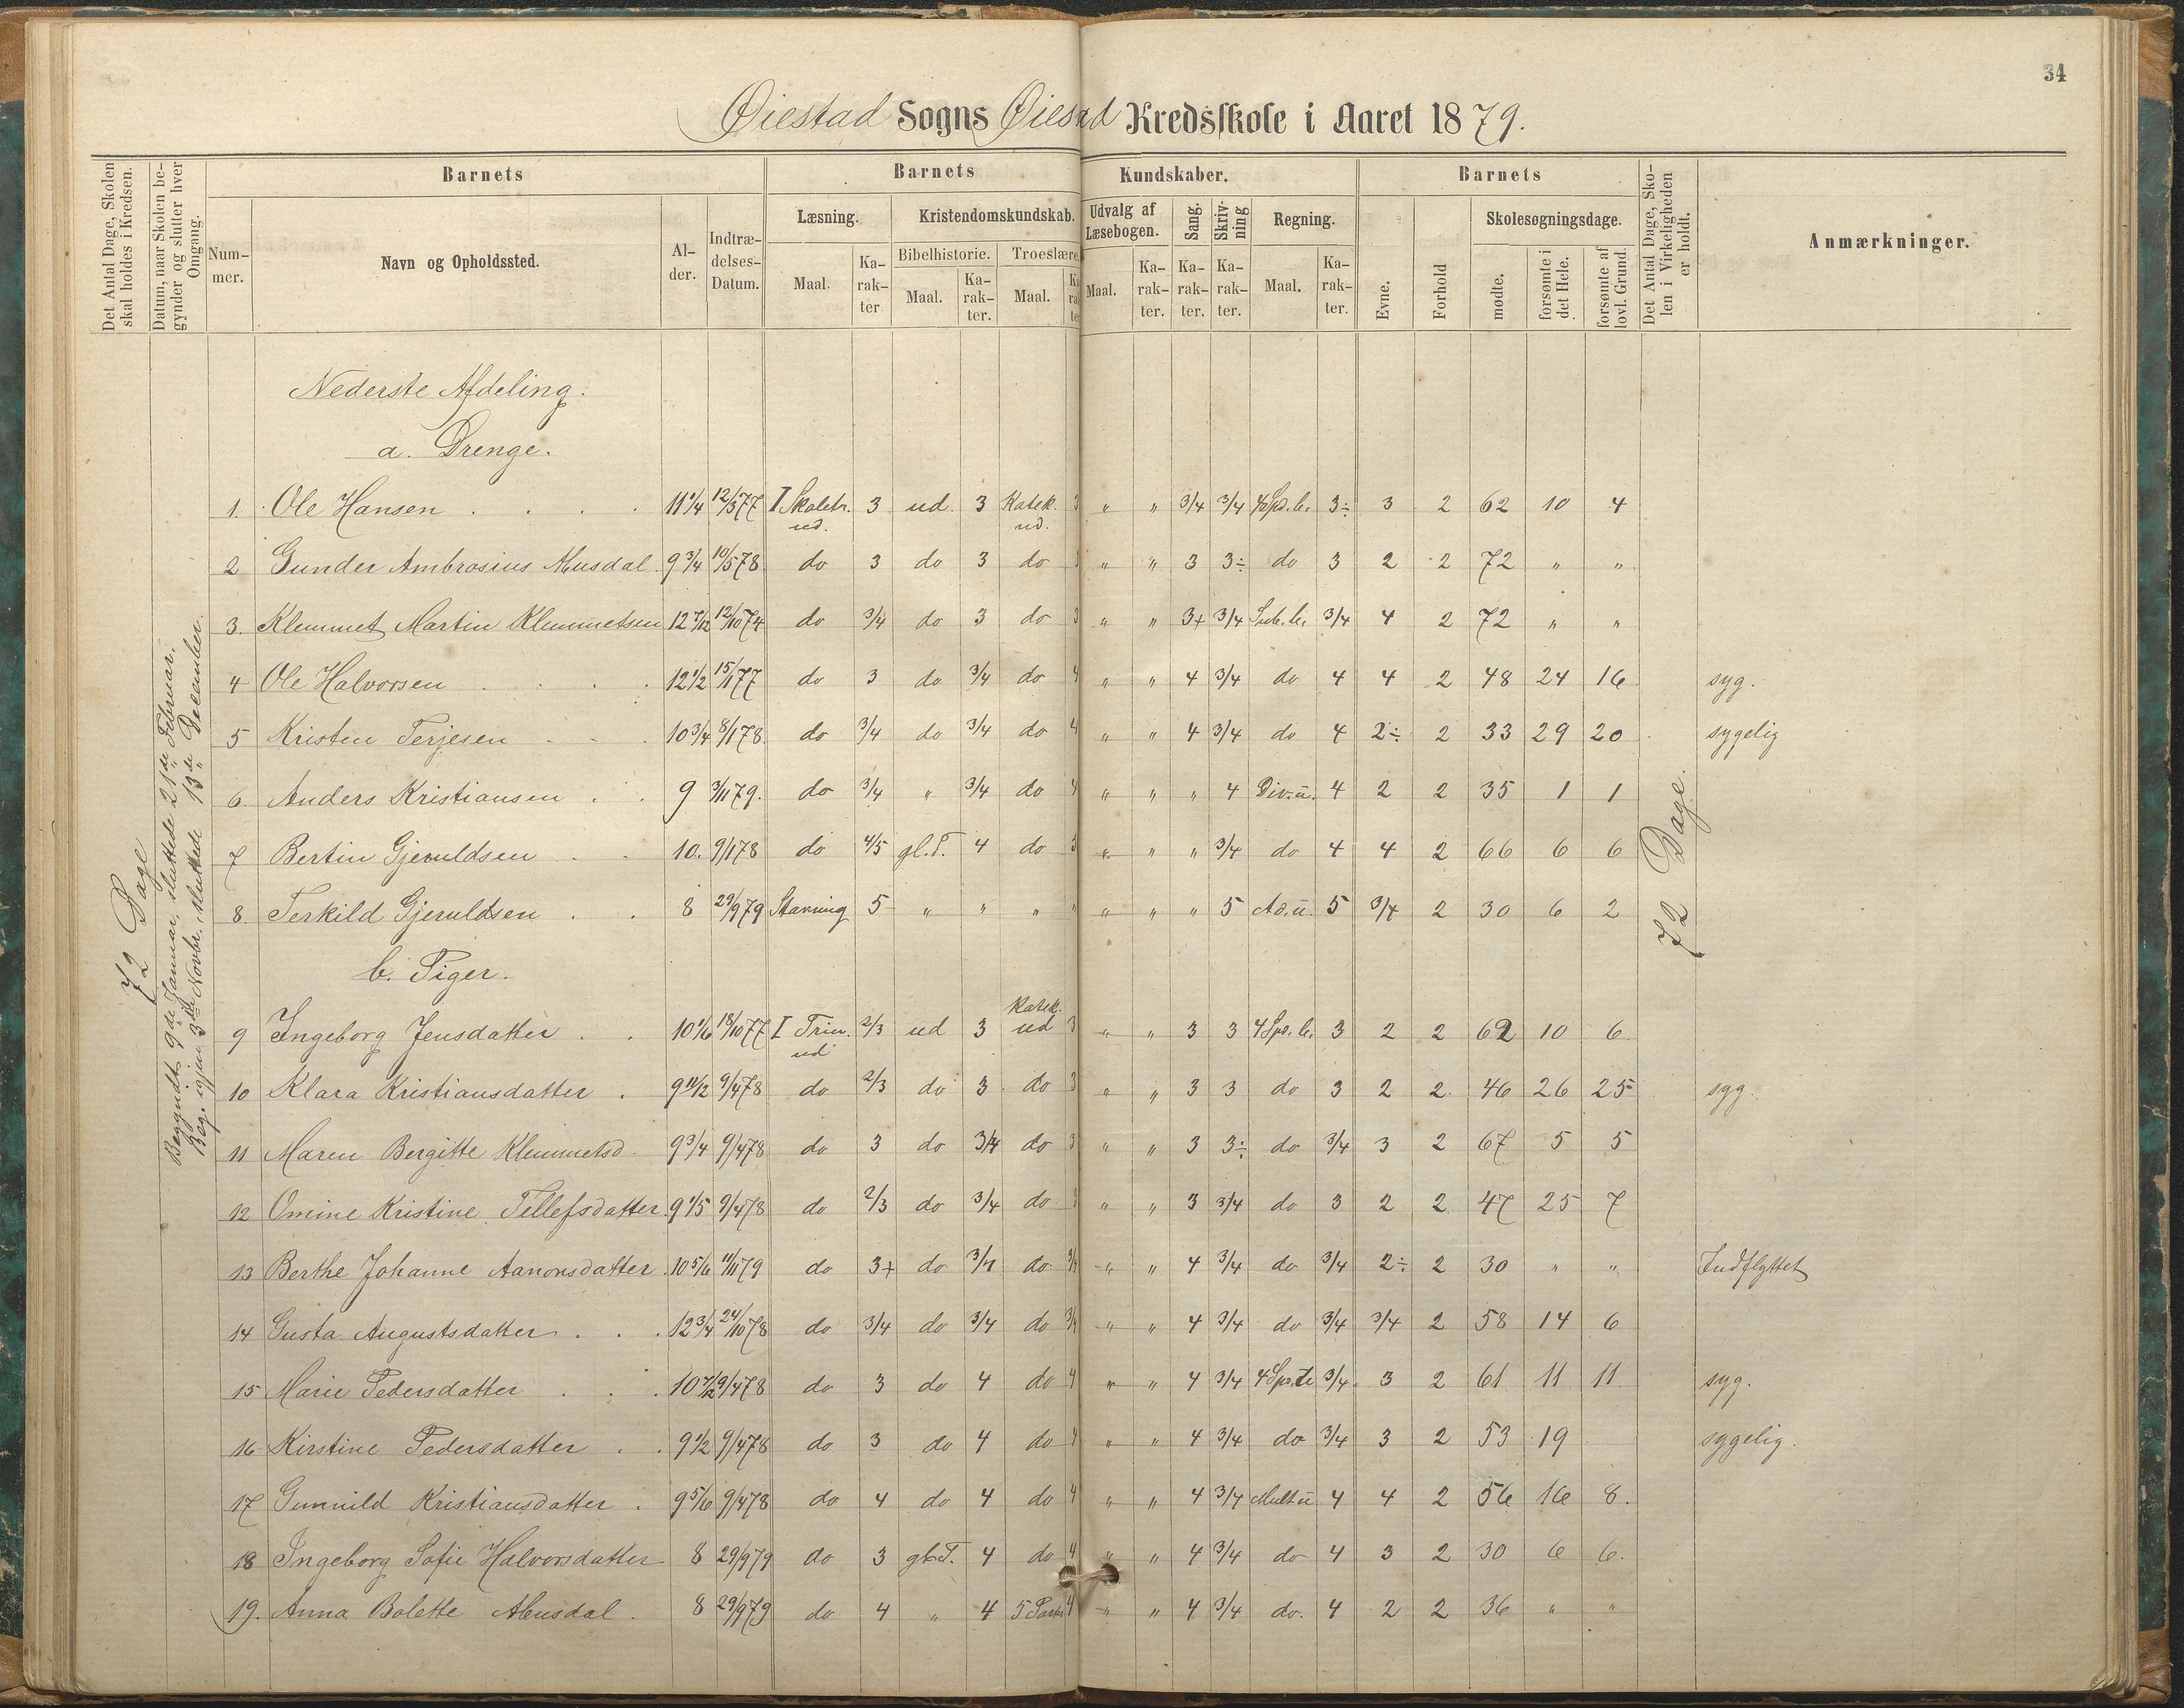 34
Øiestad Sogns Øiestad Kredsskole i Aaret 1879.
Det Antal Dage, Skolen skal holdes i Kredsen.
Datum, naar Skolen begynder og slutter hver Omgang.
Barnets
Barnets
Kundskaber.
Barnets
Det Antal Dage, Skolen i Virkeligheden er holdt.
Anmærkninger.
Nummer.
Navn og Opholdssted.
Alder.
Indtrædelses-Datum.
Læsning.
Kristendomskundskab.
Udvalg af Læsebogen.
Sang.
Skrivning
Regning.
Evne.
Forhold
Skolesøgningsdage.
Bibelhistorie.
Troeslære.
Maal.
Karakter
Maal.
Karakter.
Maal.
Karakter
Maal.
Karakter.
Karakter.
Karakter.
Maal.
Karakter.
mødte.
forsømte i det Hele.
forsømte af lovl. Grund.
72 Dage
Begyndt 9de Januar, sluttede 21de Februar.
Beg. igjen 3die Novbr., sluttede 13de December.
72 Dage.
Nederste Afdeling.
a. Drenge.
1. Ole Hansen 11 1/4 12/3 77 I Skoletr. ud. 3 ud. 3 Katek. ud. 3 " " 3/4 3/4 4 Spd. b. 3÷ 3 2 62 10 4
2 Gunder Ambrosius Musdal 9 3/4 10/5 78 do 3 do 3 do 3 " " 3 3÷ do 3 2 2 72 " "
3. Klemmet Martin Klemmetsen 12 7/12 12/10 74 do 3/4 do 3 do 3 " " 3+ 3/4 Sub. b. 3/4 4 2 72 " "
4 Ole Halvorsen 12 1/2 15/1 77 do 3 do 3/4 do 4 " " 4 3/4 do 4 4 2 48 24 16 syg.
5 Kristen Terjesen 10 3/4 8/1 78. do 3/4 do 3/4 do 4 " " 4 3/4 do 4 2÷ 2 33 29 20 sygelig
6. Anders Kristiansen 9 3/11 79. do 3/4 " 3/4 do 4 " " " 4 Div. u. 4 2 2 35 1 1
7 Bertin Gjeruldsen 10. 9/1 78 do 4/5 gl. T. 4 do 3 " " " 3/4 do 4 4 2 66 6 6
8. Terkild Gjeruldsen 8 29/9 79 Stavning 5 " " " " " " " 5 Ad. u. 5 3/4 2 30 6 2
b. Piger.
9 Ingeborg Jensdatter 10 1/6 18/10 77 I Trin. ud 2/3 ud 3 Katek. ud 3 " " 3 3 4 Spd. b. 3 2 2 62 10 6
10 Klara Kristiansdatter 9 11/12 9/4 78 do 2/3 do 3 do 3 " " 3 3 do 3 2 2. 46 26 25 syg.
11 Maren Bergitte Klemmetsd. 9 3/4 9/4 78 do 3 do 3/4 do 3 " " 3 3÷ do 3/4 3 2 67 5 5
12 Omine Kristine Tellefsdatter 9 1/5 9/4 78 do 2/3 do 3/4 do 3 " " 3 3/4 do 3 2 2 47 25 7
13 Berthe Johanne Aanonsdatter 10 5/6 11/11 79 do 3+ do 3/4 do 3/4 " " 4 3/4 do 3/4 2÷ 2 30 " " Indflyttet
14 Gusta Augustsdatter 12 3/4 24/10 78 do 3/4 do 3/4 do 3/4 " " 4 3/4 do 3/4 3/4 2 58 14 6
15 Marie Pedersdatter 10 7/12 9/4 78 do 3 do 4 do 4 " " 4 3/4 4 Sps. 3/4 3 2 61 11 11 syg.
16 Kirstine Pedersdatter 9 1/2 9/4 78 do 3 do 4 do 4 " " 4 3/4 do 3/4 3 2 53 19 sygelig.
17 Gunnild Kristiansdatter 9 5/6 9/4 78 do 4 do 4 do 4 " " 4 3/4 Mult u 4 4 2 56 16 8.
18 Ingeborg Sofie Halvorsdatter 8 29/9 79 do 3 gl. T. 4 do 4 " " 4 3/4 do 4 3 2 30 6 6.
19. Anna Bolette Musdal 8 29/9 79 do 4 " 4 5 Parter 4 " " 4 3/4 do. 4 2 2 36 " "